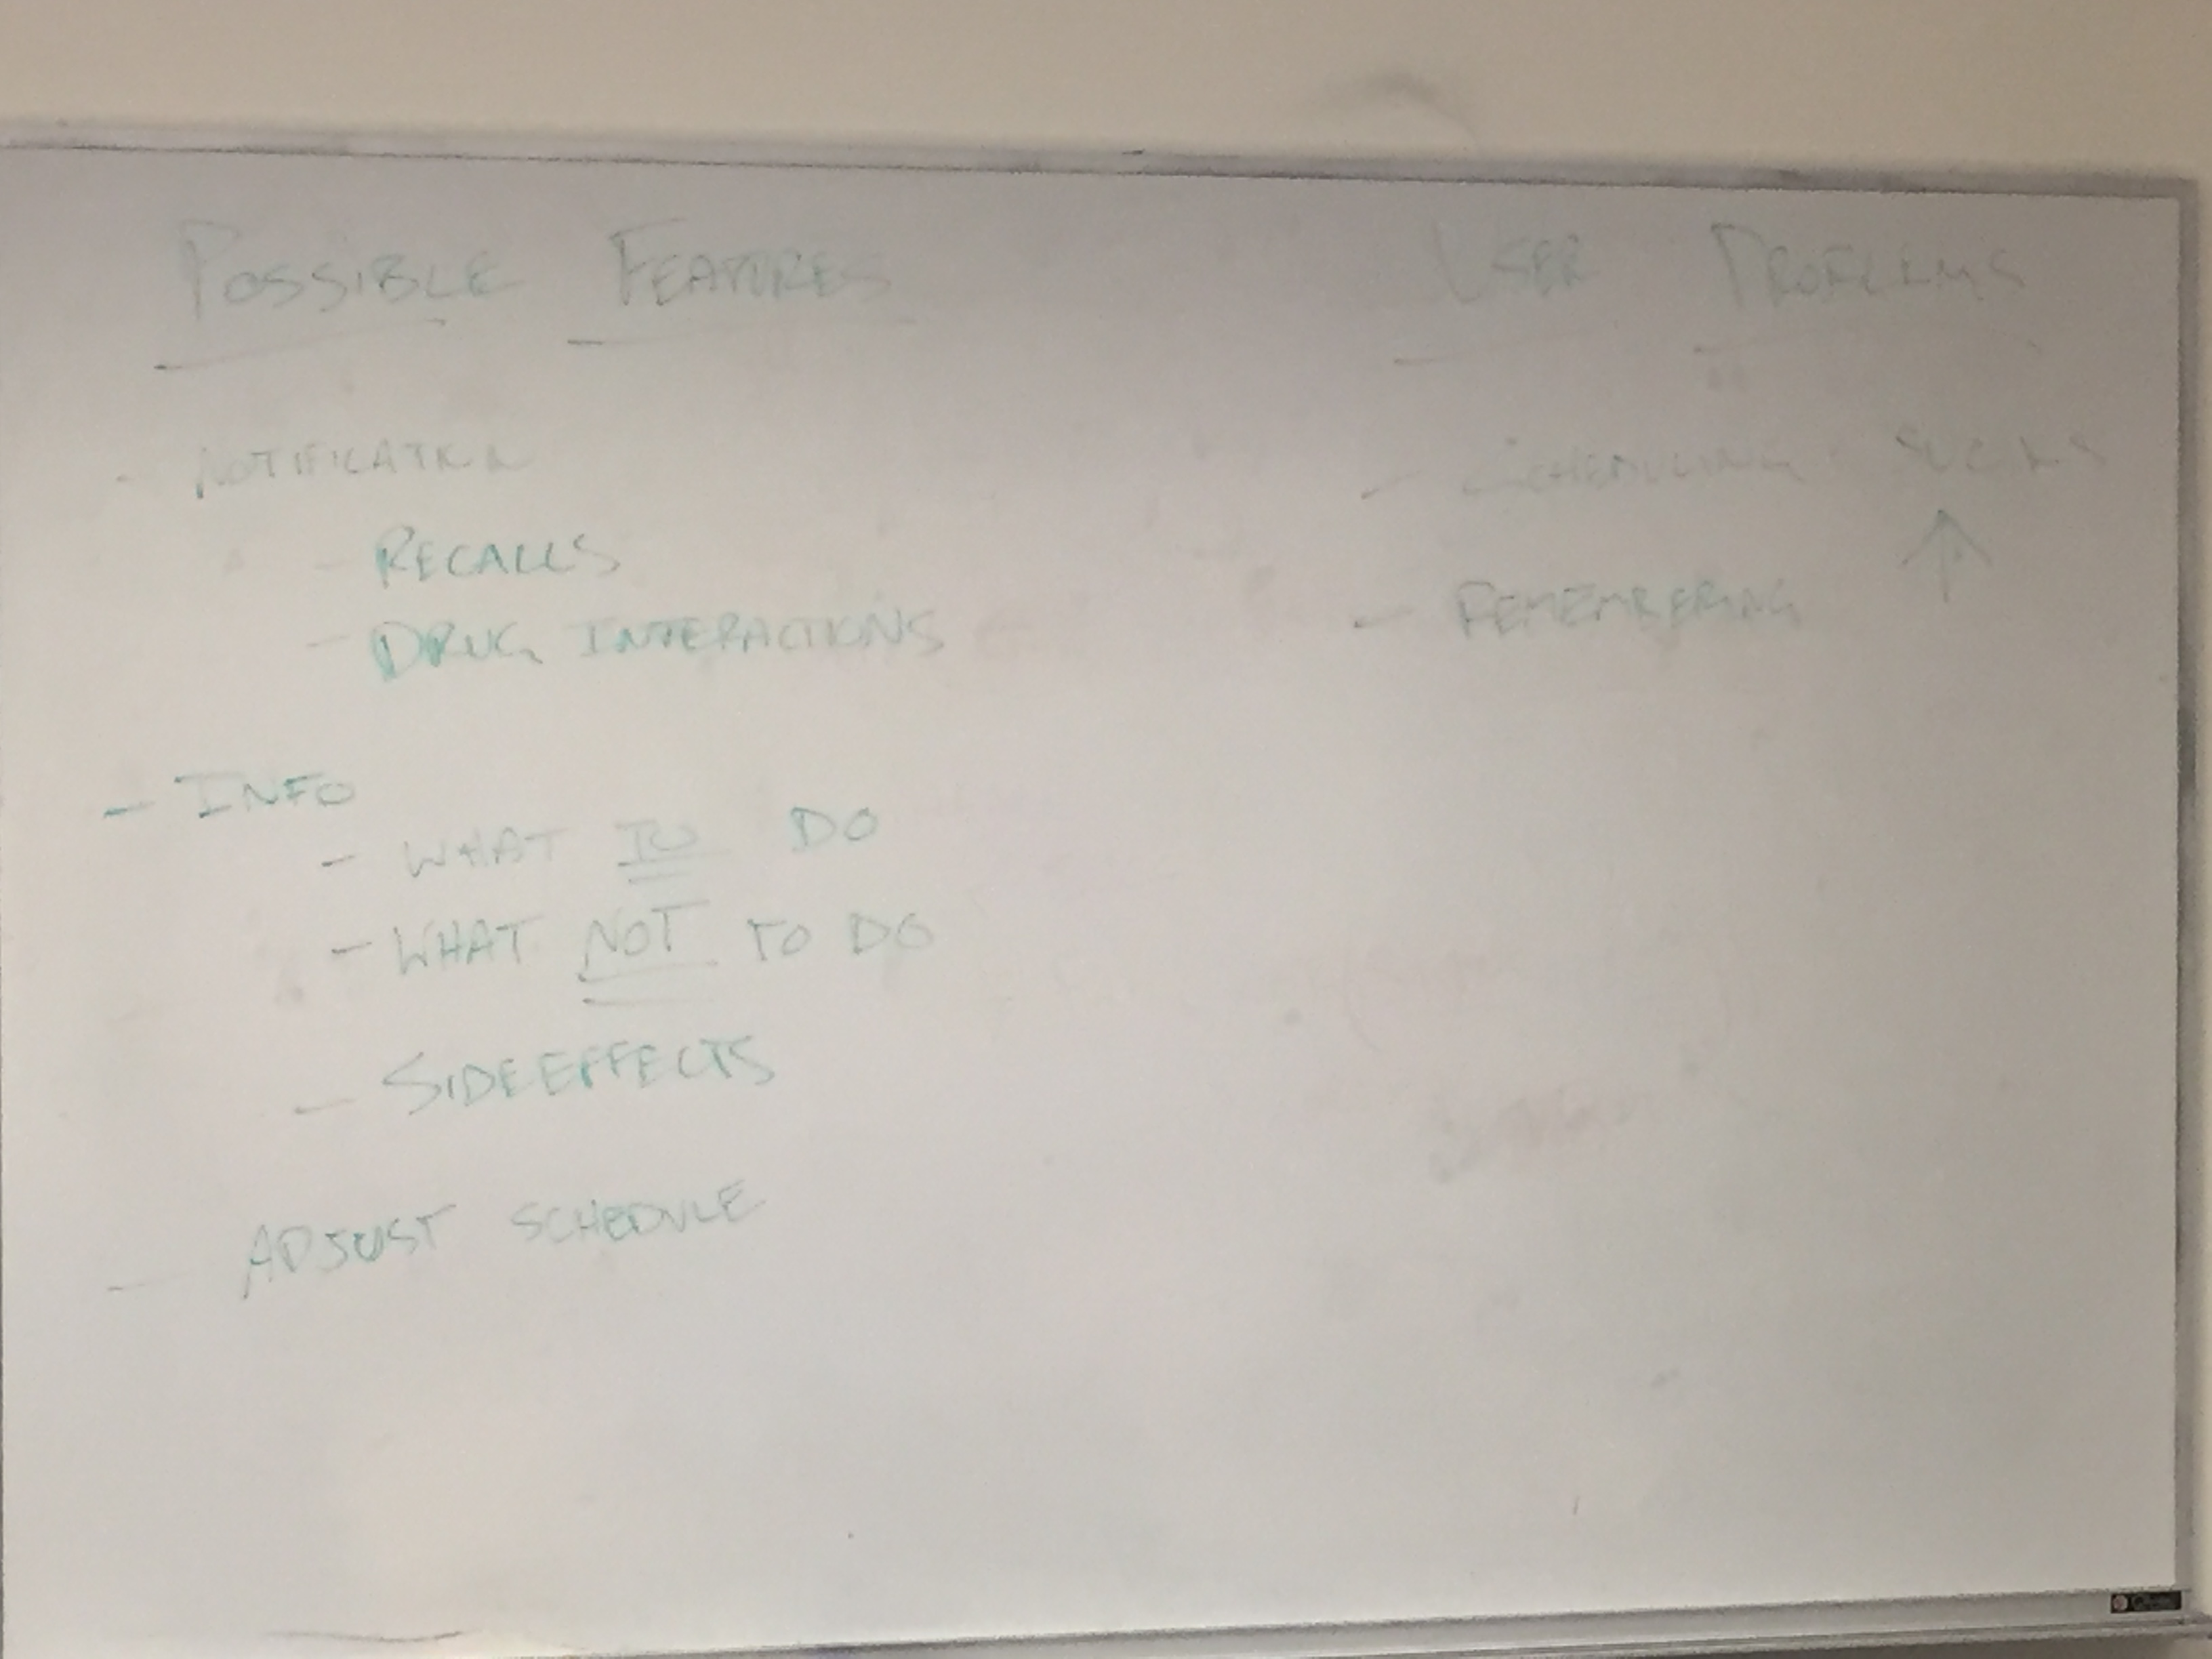 POSSIBLE FEATURES
- NOTIFICATION
- RECALLS
- DRUG INTERACTIONS
- INFO
- WHAT TO DO
- WHAT NOT TO DO
- SIDE EFFECTS
- ADJUST SCHEDULE
USER PROBLEMS
- SCHEDULING SUCKS
↑
- REMEMBERING